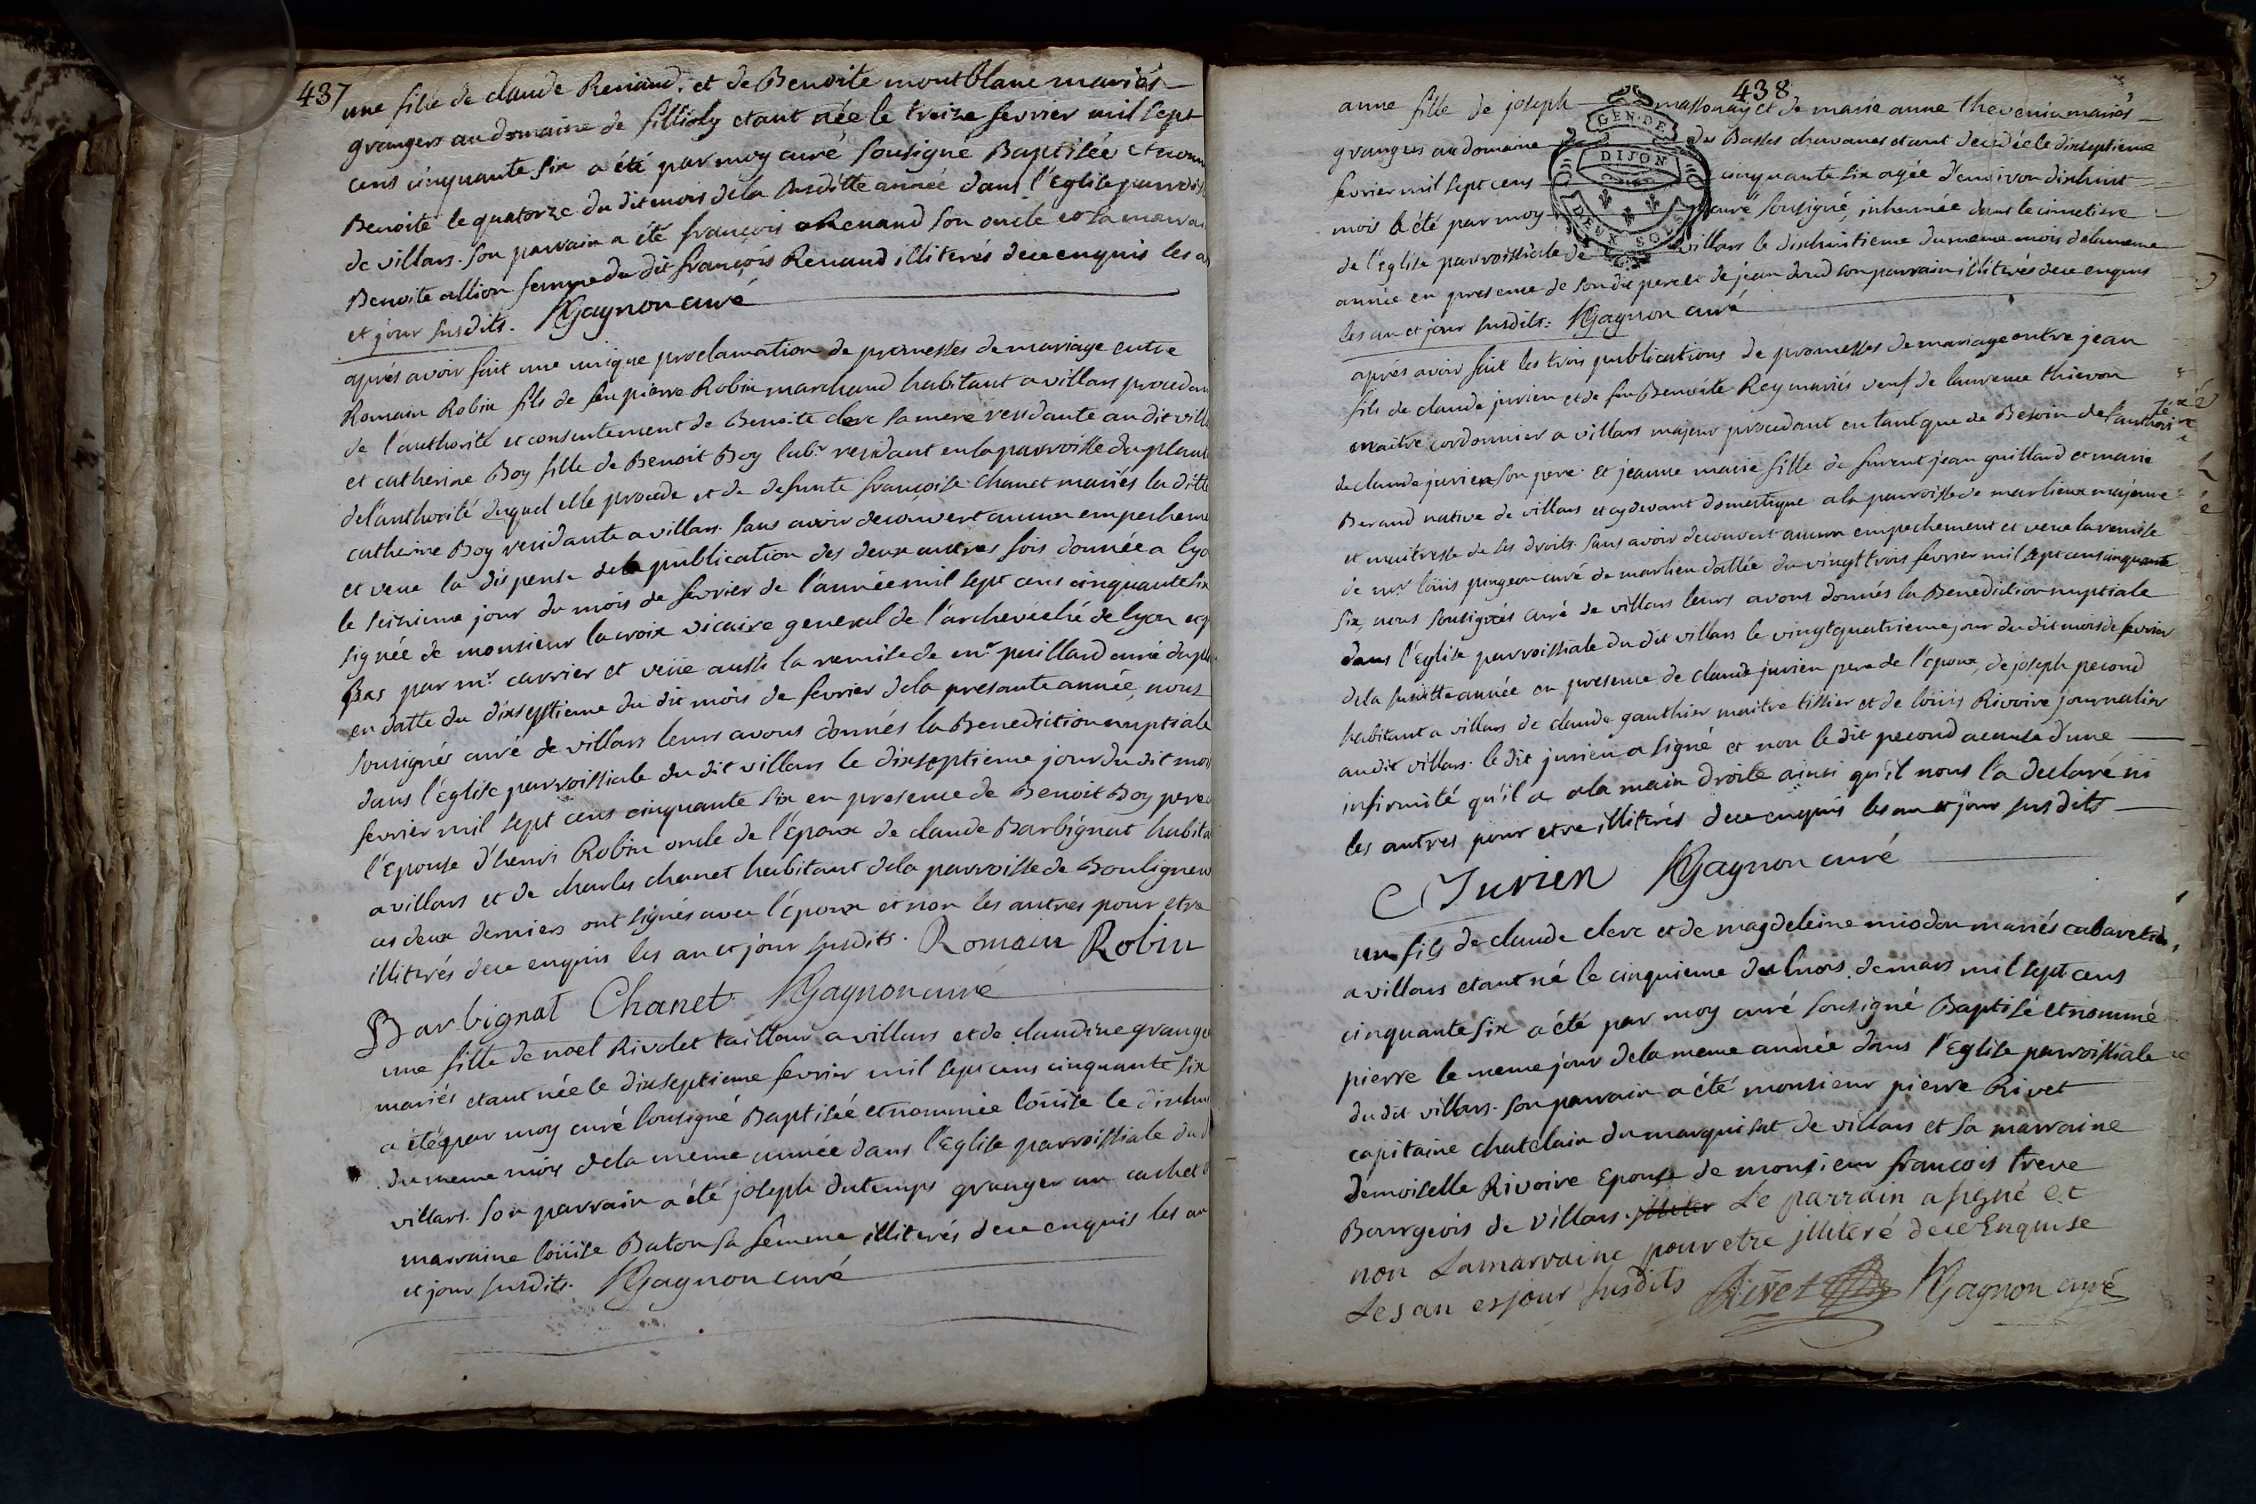 437
une fille de claude Renaud. et de Benoite montblanc mariés
grangers au domaine de fillioly etant née le treize fevrier mil sept
cens cinquante six a été par moy curé sousigné Baptisée et nom
Benoite le quatorze du dit mois de la susditte année dans l'Eglise parroiss
de villars. son parrain a été françois Renaud son oncle et sa marrai
Benoite allion femme du dit françois Renaud illiterés de ce enquis les a
et jour susdits. Gagnon curé
après avoir fait une unique proclamation de promesses de mariage entre
Romain Robin fils de feu pierre Robin marchand habitant a villars procedan
de l'authorité et consentement de Benoite clerc sa mere residante au dit vill
et catherine Boy fille de Benoit Boy labr. residant en la parroisse du plant
de l'authorité duquel elle procede et de defunte françoise chanet mariés la ditte
catherine Boy residante a villars. sans avoir decouvert aucun empecheme
et veue la dispense de la publication des deux autres fois donnée a lyo
le seizieme jour du mois de fevrier de l'année mil sept cens cinquante six
signée de monsieur lacroix vicaire general de l'archeveché de lyon et p
Bas par mr. carrier et veüe aussi la remise de mr. puillard curé du pl
en datte du dixseptieme du dit mois de fevrier de la presante année, nous
sousignés curé de villars leurs avons donnés la Benediction nuptiale
dans l'Eglise parroissiale du dit villars le dixseptieme jour du dit moi
fevrier mil sept cens cinquante six en presence de Benoit Boy pere
l'Epouse d'henri Robin oncle de l'Epoux de claude Barbignat habita
a villars et de charles chanet habitant de la parroisse de Bouligneu
ces deux derniers ont signés avec l'époux et non les autres pour etre
illiterés de ce enquis les an et jour susdits. Romain Robin
Barbignat Chanet Gagnon curé
une fille de noel Rivolet tailleur a villars et de claudine grange
mariés etant née le dixseptieme fevrier mil sept cens cinquante six
a été par moy curé sousigné Baptisée et nommée loüise le dixhu
du meme mois de la meme année dans l'Eglise parroissiale du d
villars. son parrain a été joseph dutemps granger au cachet
marraine loüise Baton sa femme illiterés de ce enquis les an
et jour susdits. Gagnon curé
438
anne fille de joseph massonay et de marie anne thevenin mariés
grangers au domaine des Basses chavanes etant decedée le dixseptieme
fevrier mil sept cens cinquante six agée d'environ dixhuit
mois a été par moy curé sousigné, inhumée dans le cimetiere
de l'Eglise parroissiale de villars le dixhuitieme du meme mois de la meme
année en presence de son dit pere et de jean son parrain illiterés de ce enquis
les an et jour susdits: Gagnon curé
GEN. DE
DIJON
DEUX SOLS
après avoir fait les trois publications de promesses de mariage entre jean
fils de claude jurien et de feu Benoite Rey mariés veuf de laurence thievon
maitre cordonnier a villars majeur procedant en tant que de Besoin de l'authorité
de claude jurien son pere. et jeanne marie fille de furent jean guillard et marie
Berand native de villars et cy devant domestique a la parroisse de marlieux majeure
et maitresse de ses droits. sans avoir decouvert aucun empechement et veue la remise
de mr. loüis pingeon curé de marlieu dattée du vingt trois fevrier mil sept cens cinquante
six, nous sousignés curé de villars leurs avons donnés la Benediction nuptiale
dans l'Eglise parroissiale du dit villars le vingt quatrieme jour du dit mois de fevrier
de la susditte année en presence de claude jurien pere de l'époux, de joseph pecond
habitant a villars de claude gauthier maitre tissier et de loüis Rivoire journalier
au dit villars. le dit jurien a signé et non le dit pecond a cause d'une
infirmité qu'il a a la main droite ainsi qu'il nous l'a declaré ni
les autres pour etre illiterés de ce enquis les an et jour susdits
C Jurien Gagnon curé
un fils de claude clerc et de magdeleine miodon mariés cabaretiers
a villars etant né le cinquieme du mois de mars mil sept cens
cinquante six a été par moy curé sousigné Baptisé et nommé
pierre le meme jour de la meme année dans l'Eglise parroissiale
du dit villars. son parrain a été monsieur pierre Rivet
capitaine chatelain du marquisat de villars et sa marraine
demoiselle Rivoire Epouse de monsieur françois treve
Bourgeois de villars. Le parrain a signé et
non Lamarraine pour etre jlliteré de ce Enquise
Les an et jour susdits Rivet Gagnon curé